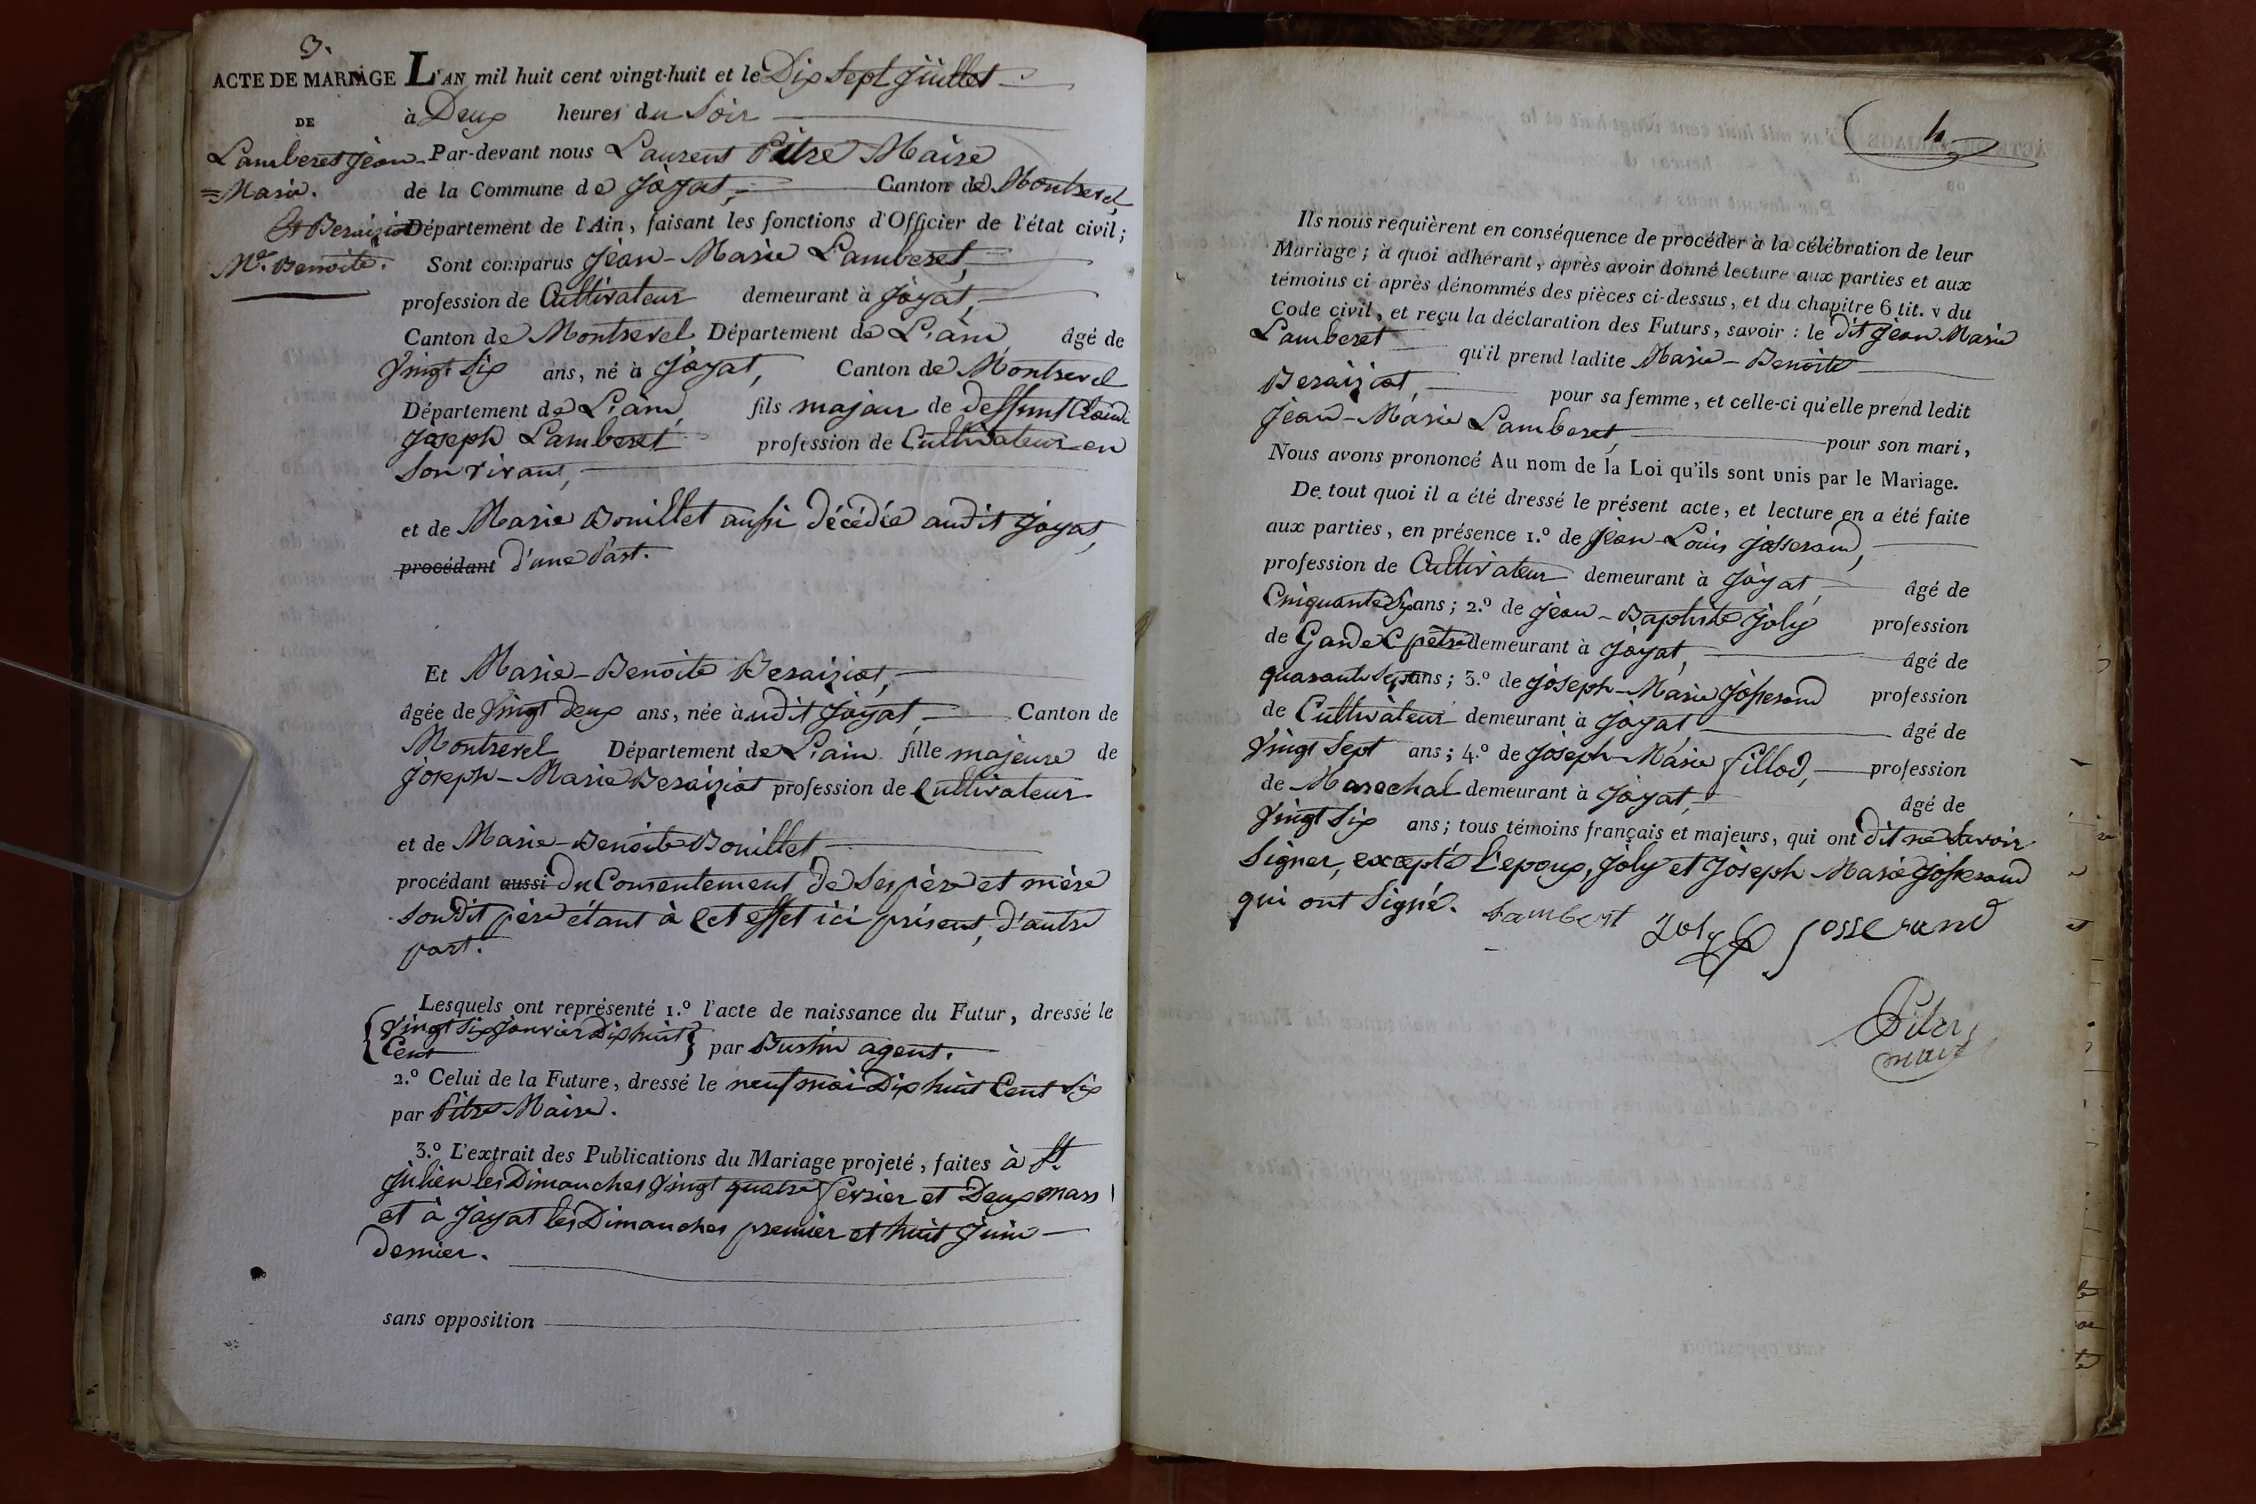 3.
ACTE DE MARIAGE
DE
Lamberet Jean
= Marie.
Et Beraiziat
Mie. Benoite.
L'AN mil huit cent vingt-huit et le Dix Sept Juillet
à Deux heures du Soir
Par-devant nous Laurent Pitre Maire
de la Commune de Jayat, Canton de Montrevel,
Département de l'Ain, faisant les fonctions d'Officier de l'état civil;
Sont comparus Jean-Marie Lamberet,
profession de Cultivateur demeurant à Jayat,
Canton de Montrevel Département de L'ain âgé de
Vingt Six ans, né à Jayat, Canton de Montrevel
Département de L'ain fils majeur de deffunt Claude
Joseph Lamberet profession de Cultivateur en
Son vivant,
et de Marie Bouillet aussi décédée audit Jayat,
procédant d'une Part.
Et Marie-Benoite Beraiziat,
âgée de Vingt deux ans, née audit Jayat, Canton de
Montrevel Département de L'ain fille majeure de
Joseph-Marie Beraiziat profession de Cultivateur
et de Marie-Benoite Bouillet
procédant aussi du Consentement de Ses père et mère
Son dit père étant à Cet effet ici présent, d'autre
part.
Lesquels ont représenté 1.º l'acte de naissance du Futur, dressé le
{Vingt Six Janvier Dix huit
Cent} par Bustin agent.
2.º Celui de la Future, dressé le neuf mai Dix huit Cent Six
par Pitre Maire.
3.º L'extrait des Publications du Mariage projeté, faites à St.
Julien les Dimanches Vingt quatre fevrier et Deux mars
et à Jayat les Dimanches premier et huit Juin
dernier.
sans opposition
4
Ils nous requièrent en conséquence de procéder à la célébration de leur
Mariage; à quoi adhérant, après avoir donné lecture aux parties et aux
témoins ci-après dénommés des pièces ci-dessus, et du chapitre 6 tit. v du
Code civil, et reçu la déclaration des Futurs, savoir: le dit Jean Marie
Lamberet qu'il prend ladite Marie-Benoite
Beraiziat, pour sa femme, et celle-ci qu'elle prend ledit
Jean-Marie Lamberet, pour son mari,
Nous avons prononcé Au nom de la Loi qu'ils sont unis par le Mariage.
De tout quoi il a été dressé le présent acte, et lecture en a été faite
aux parties, en présence 1.º de Jean-Louis Josserand,
profession de Cultivateur demeurant à Jayat, âgé de
Cinquante Six ans; 2.º de Jean-Baptiste Joly profession
de Garde Cpetre demeurant à Jayat, âgé de
quarante Sept ans; 3.º de Joseph-Marie Josserand profession
de Cultivateur demeurant à Jayat, âgé de
Vingt Sept ans; 4.º de Joseph-Marie fillod, profession
de Marechal demeurant à Jayat, âgé de
Vingt Six ans; tous témoins français et majeurs, qui ont dit ne Savoir
Signer, excepté L'epoux, Joly et Joseph Marie Josserand
qui ont Signé. Lamberet Joly Josserand
Pitre
maire